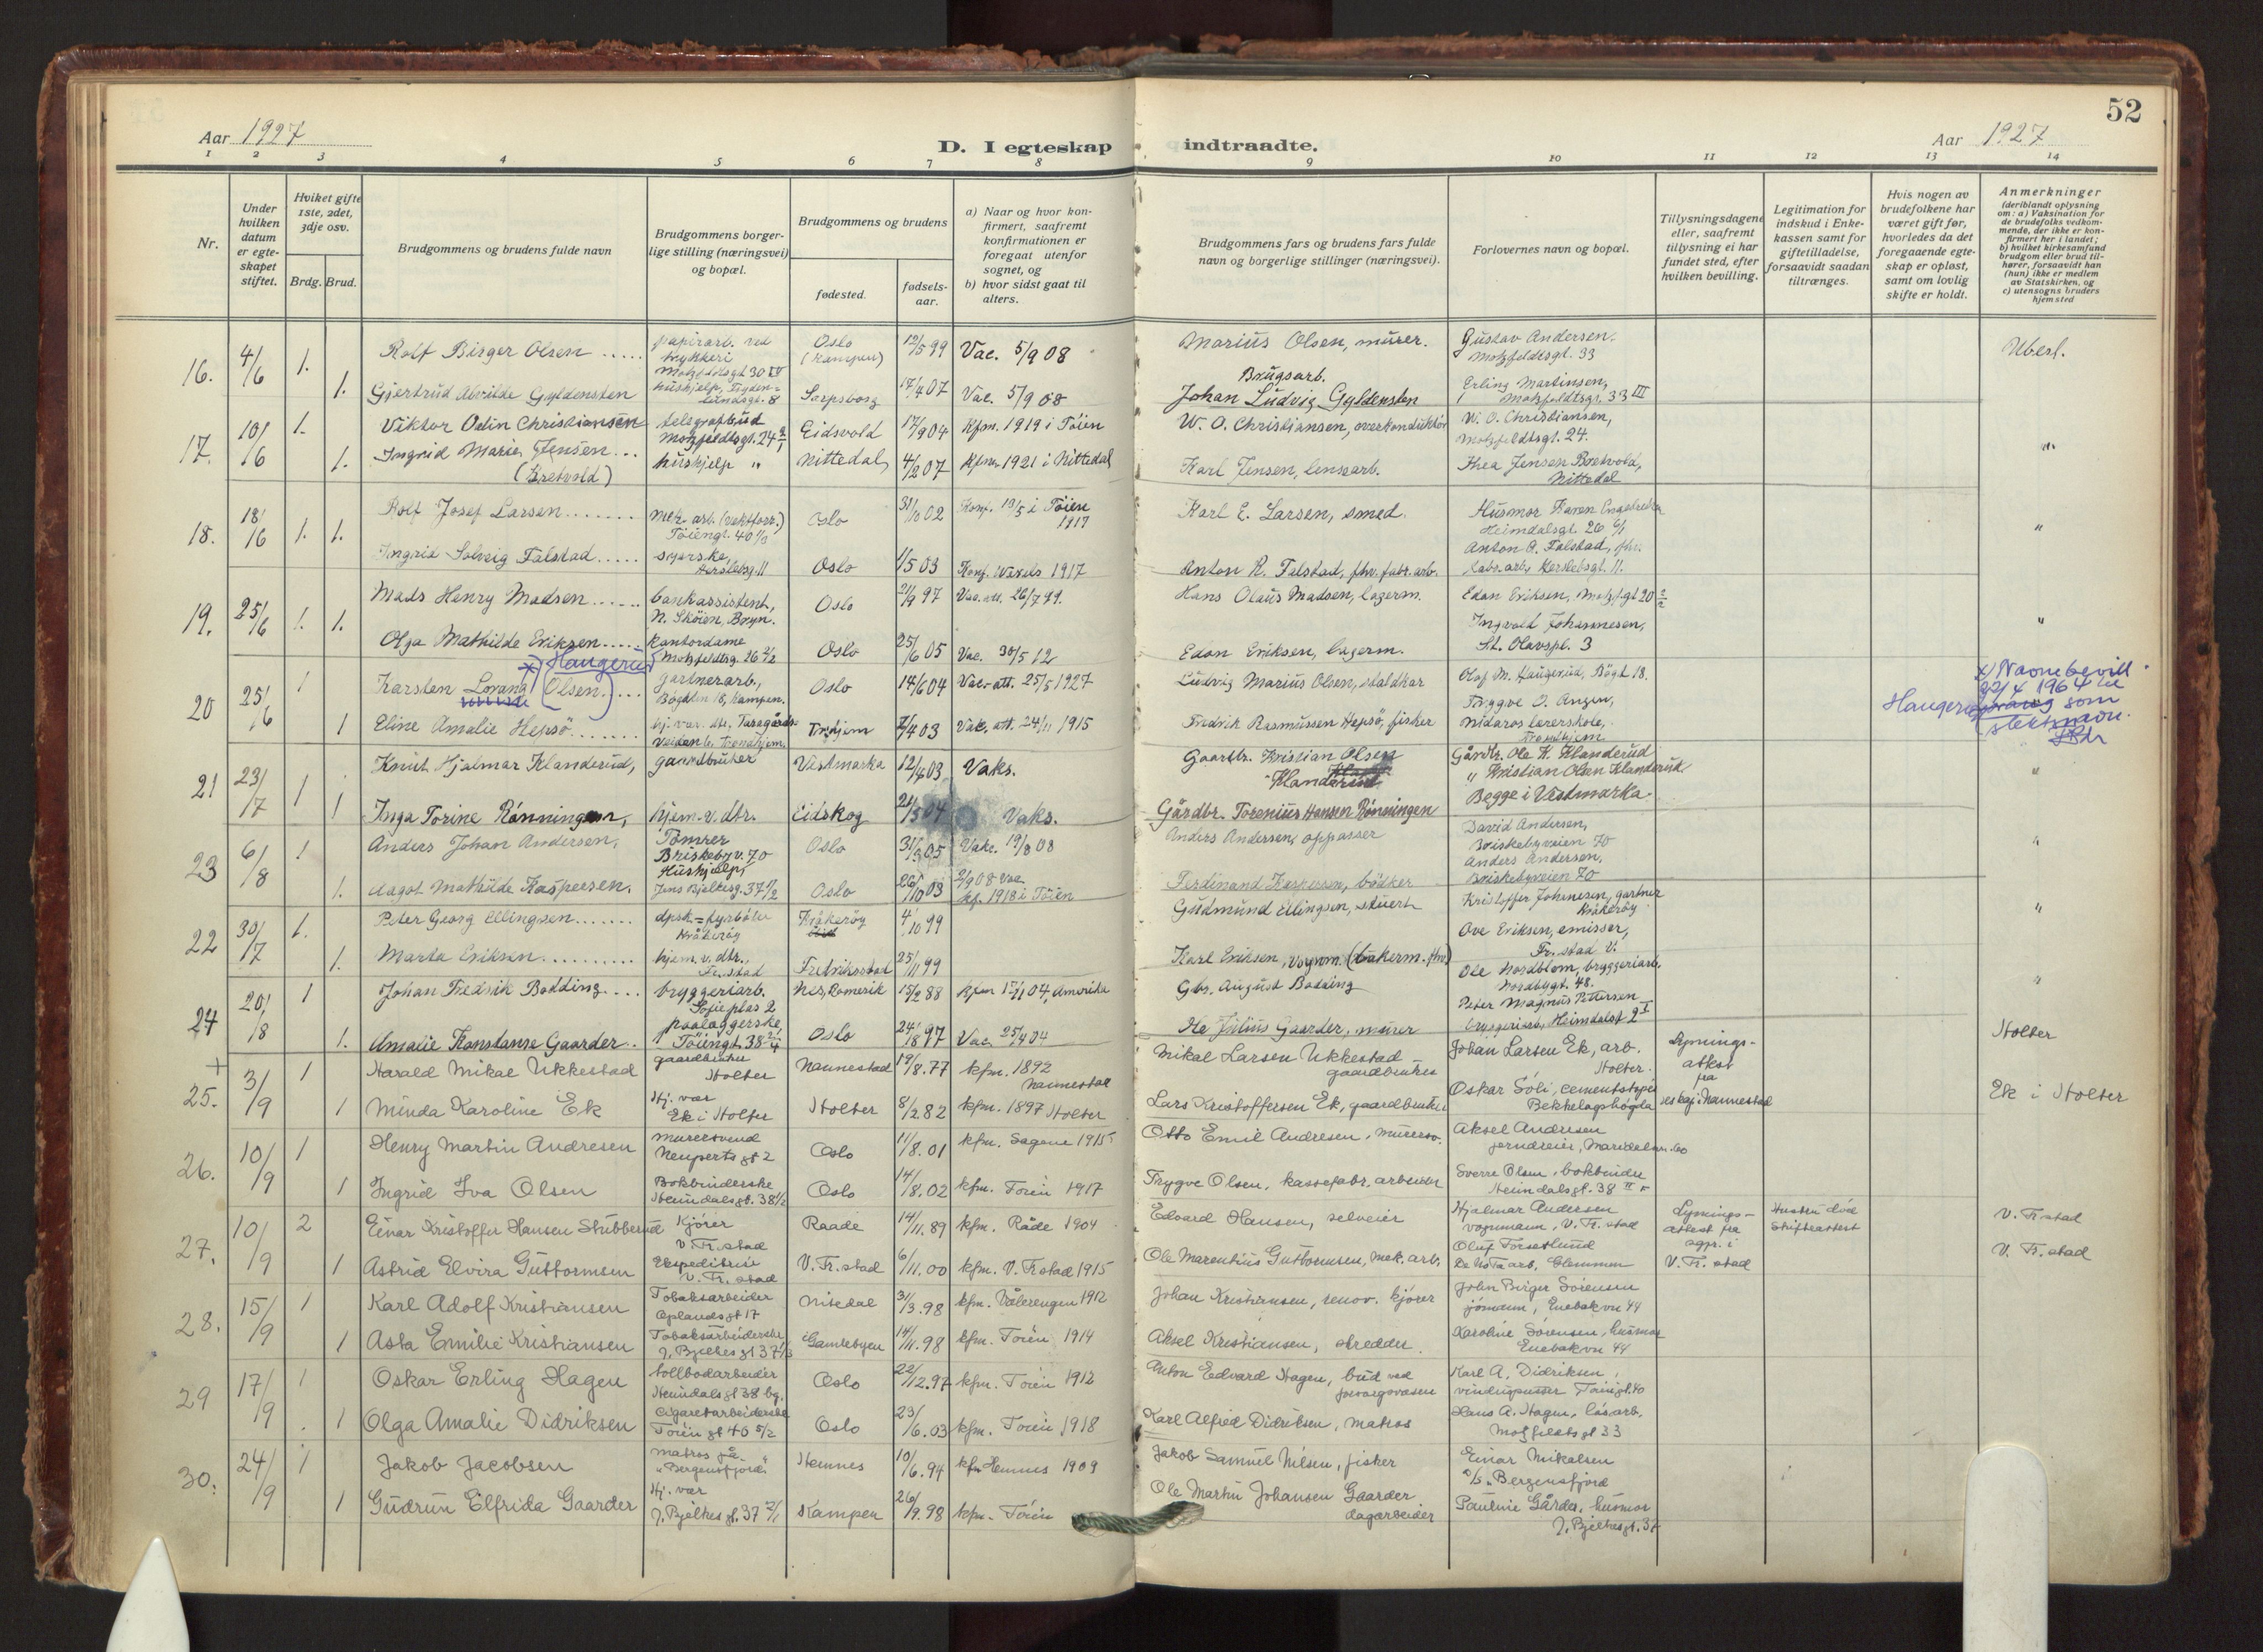 52
Aar 1927
D. I egteskap indtraadte.
Aar 1927
1 2 3 4 5 6 7 8 9 10 11 12 13 14
Nr.
Under hvilken datum er egteskapet stiftet.
Hviket gifte 1ste, 2det, 3dje osv.
Brdg. Brud.
Brudgommens og brudens fulde navn
Brudgommens borgerlige stilling (næringsvei) og bopæl.
Brudgommens og brudens
fødested.
fødselsaar.
a) Naar og hvor konfirmert, saafremt konfirmationen er foregaat utenfor sognet, og
b) hvor sidst gaat til alters.
Brudgommens fars og brudens fars fulde navn og borgerlige stillinger (næringsvei).
Forlovernes navn og bopæl.
Tillysningsdagene eller, saafremt tillysning ei har fundet sted, efter hvilken bevilling.
Legitimation for indskud i Enkekassen samt for giftetilladelse, forsaavidt saadan tiltrænges.
Hvis nogen av brudefolkene har været gift før, hvorledes da det foregaaende egteskap er opløst, samt om lovlig skifte er holdt.
Anmerkninger
(deriblandt oplysning om: a) Vaksination for de brudefolks vedkommende, der ikke er konfirmert her i landet; b) hvilket kirkesamfund brudgom eller brud tilhører, forsaavidt han (hun) ikke er medlem av Statskirken, og c) utensogns bruders hjemsted
16. 4/6 1. Rolf Birger Olsen papirarb. ved trykkeri Motzfeldtsgt 30 IV Oslo (Kampen) 12/5 99 Vac. 5/9 08 Marius Olsen, murer. Gustav Andersen. Motzfeldtsgt. 33 Uberl.
1. Gjertrud Alvilde Gyldensten hushjelp, Sarpsborg 17/4 07 Vac. 5/9 08 Brugsarb. Johan Ludvig Gyldensten Erling Martinsen, Motzfeldtsgt. 33 III
17. 10/6 1. Viktor Odin Christiansen telegrafbud Motzfeldtsgt. 24 Eidsvold 17/9 04 Kfm. 1919 i Töien W. O. Christiansen, overkonduktör W. O. Christiansen, Motzfeldtsgt. 24. "
1. Ingrid Marie Jensen (Bretvold) hushjelp " Nittedal 4/2 07 Kfm. 1921 i Nittedal Karl Jensen, lensearb. Thea Jensen Bretvold, Nittedal
18. 18/6 1. 1. Rolf Josef Larsen mek. arb. Töiengt. 40 Oslo 31/10 02 Konf. 13/5 i Töien 1917 Karl E. Larsen, smed. Husmor Karen Heimdalsgt. 26 "
Ingrid Solveig Falstad syerske, Herslebsg. 11 Oslo 1/5 03 Konf. Wexels 1917 Anton R. Falstad, fhv. fabr. arb. Anton R. Falstad, fhv. fabr. arb. Herslebsgt. 11.
19. 25/6 1. 1. Mads Henry Madsen bankassistent, N. Sköien, Bryn. Oslo 21/9 97 Vac. att. 26/7 99. Hans Olaus Madsen, lagerm. Edon Eriksen, Motzf.gt 20 "
Olga Mathilde Eriksen kontordame Motzfeldtsg. 26 2/2 Oslo 25/6 05 Vac. 30/5 12 Edon Eriksen, lagerm. Ingvald Johannesen, St. Olavspl. 3
20 25/6 1 Karsten Lorang (Olsen.) x) Haugerud gartnerarb., Bögt 18, Kampen. Oslo 14/6 04 Vac. att. 25/5 1927 Ludvig Marius Olsen, staldkar Olaf M. Haugerud, Bögt 18. x) Navnebevill. 22/4 1964 til Haugerud som slektsnavn.
1 Eline Amalie Hepsö hj. var. dtr. Trondhjem. Trhjem 7/4 03 Vac. att. 24/11 1915 Fredrik Rasmussen Hepsö, fisker Tryggve O. Nidaros lærerskole, Trondhjem
21 23/7 1 Knut Hjalmar Klanderud, gaardbruker Vestmarka 12/4 03 Vaks. Gaardbr. Kristian Olsen Klanderud Gårdbr. Ole K. Klanderud " Kristian Olsen Klanderud "
1 Inga Torine Rønningen, hjem. v. dtr. Eidskog 21/5 04 Vaks. Gårdbr. Torenius Hansen Rønningen Begge i Vestmarka.
23 6/8 1 Anders Johan Andersen, Tömrer Briskebyv. 70 Oslo 31/3 05 Vakc. 19/8 08 Anders Andersen, oppasser David Andersen, Briskebyveien 70 "
1. Dagot Mathilde Kaspersen. Hushjelp, Jens Bjelkesg. 37 1/2 Oslo 26/10 03 2/9 08 Vac kf. 1918 i Töien Ferdinand Kaspersen, bödker Anders Andersen, Briskebyveien 70
22 30/7 1. Peter Georg Ellingsen Kråkeröy Kråkeröy 4/10 99 Gudmund Ellingsen, stuert Kristoffer Johanesen, gartner Kråkeröy "
1. Marta Eriksen hjem. v. dtr., Fr. stad Fredriksstad 25/11 99 Karl Eriksen, vognm. (bakerm. fhv) Ove Eriksen, emisser, Fr. stad V.
24 20/8 1 Johan Fredrik Bodding bryggeriarb. Sofieplas 2 Nes, Romerik 15/2 88 Kfm 04, Amerika Gbr. August Bodding Ole Nordblom, bryggeriarb. Nordbygt. 48. "
1. Amalie Konstanse Gaarder paalæggerske, Töiengt. 38 Oslo 24/8 97 Vac. 25/9 04 Ole Julius Gaarder, murer Peter Magnus Pettersen bryggeriarb. Heimdalsgt 2 I
+
25. 3/9 1 Harald Mikal Ukkestad gaardbruker Holter Nannestad 19/8.77 kfm. 1892 Nannestad Mikal Larsen Ukkestad - gaardbruker Johan Larsen Ek, arb. Holter. Lysningsattest fra Nannestad Holter
1 Minda Karoline Ek Hj. vær Ek i Holter Holter 8/2 82 kfm. 1897 Holter Lars Kristoffersen Ek, gaardbruker Oskar Söli, cementstøper Bekkelagshögda Ek i Holter
26. 10/9 1 Henry Martin Andresen murersvend Neupertsgt 2 Oslo 11/8.01 kfm. Sagene 1915 Otto Emil Andresen, murersv. Aksel Andresen jerndreier,
1 Ingrid Iva Olsen Bokbinderske Heimdalsgt. 38 1/2 Oslo 14/8.02 kfm. Toien 1917 Trygve Olsen, kassefabr. arbeider Sverre Olsen, bokbinder Heimdalsgt. 38 II
27. 10/9 2 Einar Kristoffer Hansen Stubberud Kjører V. Fr. stad Raade 14/11.89 kfm. Råde 1904 Edvard Hansen, selveier Hjalmar Andersen vognmann, V. Fr. stad Lysningsattest fra sgpr. i V. Fr. stad Hustru död Skifteattest V. Fr stad
1 Astrid Elvira Guttormsen Ekspeditrise V. Fr. stad V. Fr. stad 6/11.00 kfm. V. Fr stad 1915 Ole Marentius Guttormsen, mek. arb. Oluf Torsetlund Glemmen V. Fr. stad
28. 15/9 1 Karl Adolf Kristiansen Tobaksarbeider Oplandsgt 17 Nitedal 3/3.98 kfm. Vålerengen 1912 Johan Kristiansen, renov. kjører John Birger Sörensen Enebakvn 44
1 Asta Emilie Kristiansen Tobaksarbeiderske J. Bjelkesgt 37 1/3 Gamlebyen 14/11.98 kfm. Toien 1914 Aksel Kristiansen, skredder. Karoline Sörensen, husmor Enebakvn 44
29 17/9 1 Oskar Erling Hagen tollbodarbeider Heimdalsgt 38 bg. Oslo 22/12.97 kfm. Toien 1912 Anton Edvard Hagen, bud ved Karl A. Didriksen, vinduspusser Toiengt. 40
1 Olga Amalie Didriksen Cigaretarbeiderske Töiengt 40 5/2 Oslo 23/6.03 kfm. Toien 1918 Karl Alfred Didriksen, matros Hans A. Hagen, løsarb. Motzfeldtsgt 33
30. 24/9 1 Jakob Jacobsen matros på "Bergensfjord" Hemnes 10/6.94 kfm Hemnes 1909 Jakob Samuel Nilsen, fisker Einar Mikalsen D/S "Bergensfjord
1 Gudrun Elfrida Gaarder Hj. vær J. Bjelkesgt. 37 2/1 Kampen 26/9.98 kfm. Toien Ole Martin Johansen Gaarder dagarbeider Pauline Gårder, husmor J. Bjelkesgt. 37